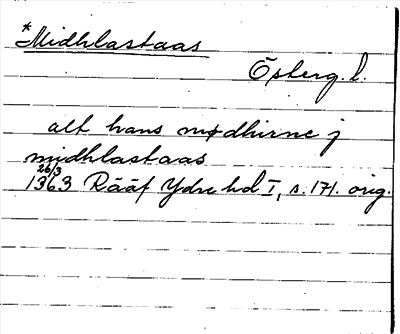 *Midhlastaas
Österg. l.
alt hans mødhirne j
midhlastaas
26/3
1363 Rääf Ydre hd I, s. 171. orig.